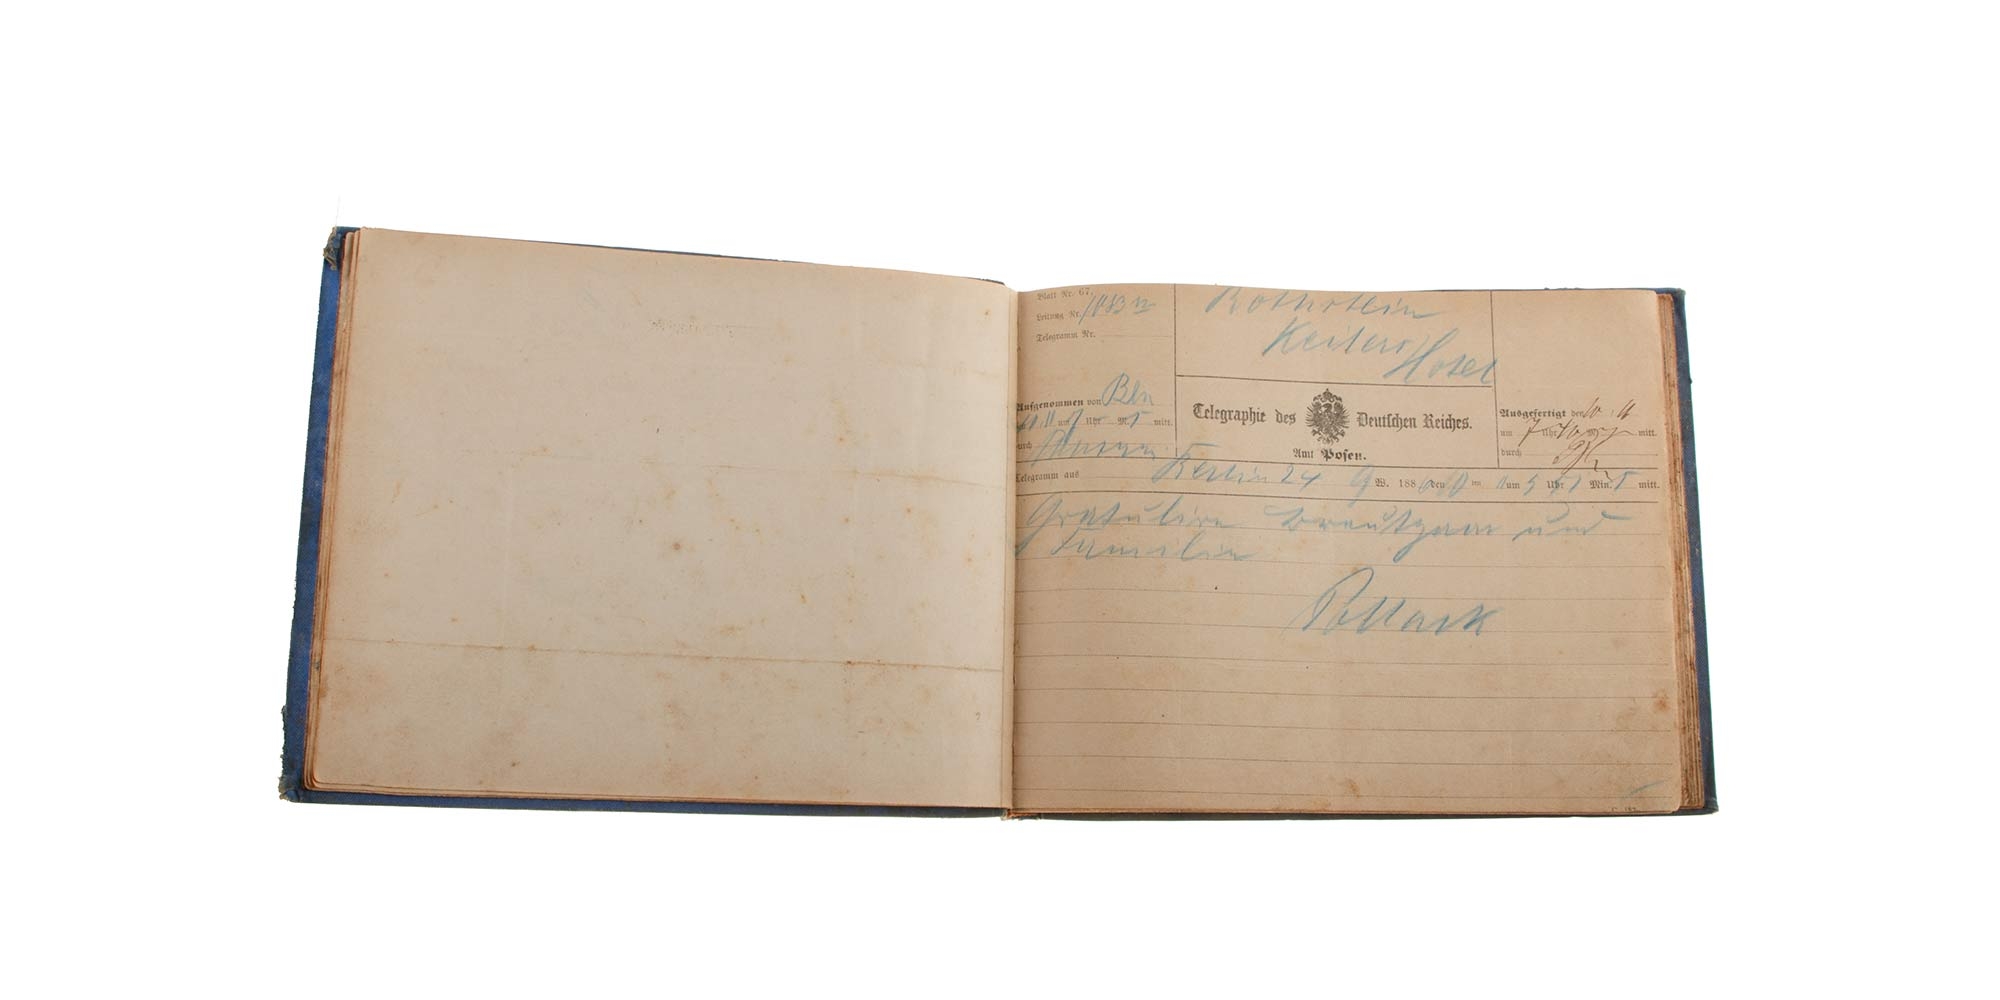 Blatt Nr. 67.
Leitung Nr.
Telegramm Nr.
Rothstein
Keilers Hotel
Aufgenommen von Bln
um Uhr M. mitt.
durch
Telegraphie des Deutschen Reiches.
Amt Posen.
Ausgefertigt den 10 11
um 7 Uhr 10 M. mitt.
durch
Telegramm aus Berlin 24 9 W. 188 den um 5 Uhr Min. mitt.
Gratulire Breutgam und
Familie
Pollack